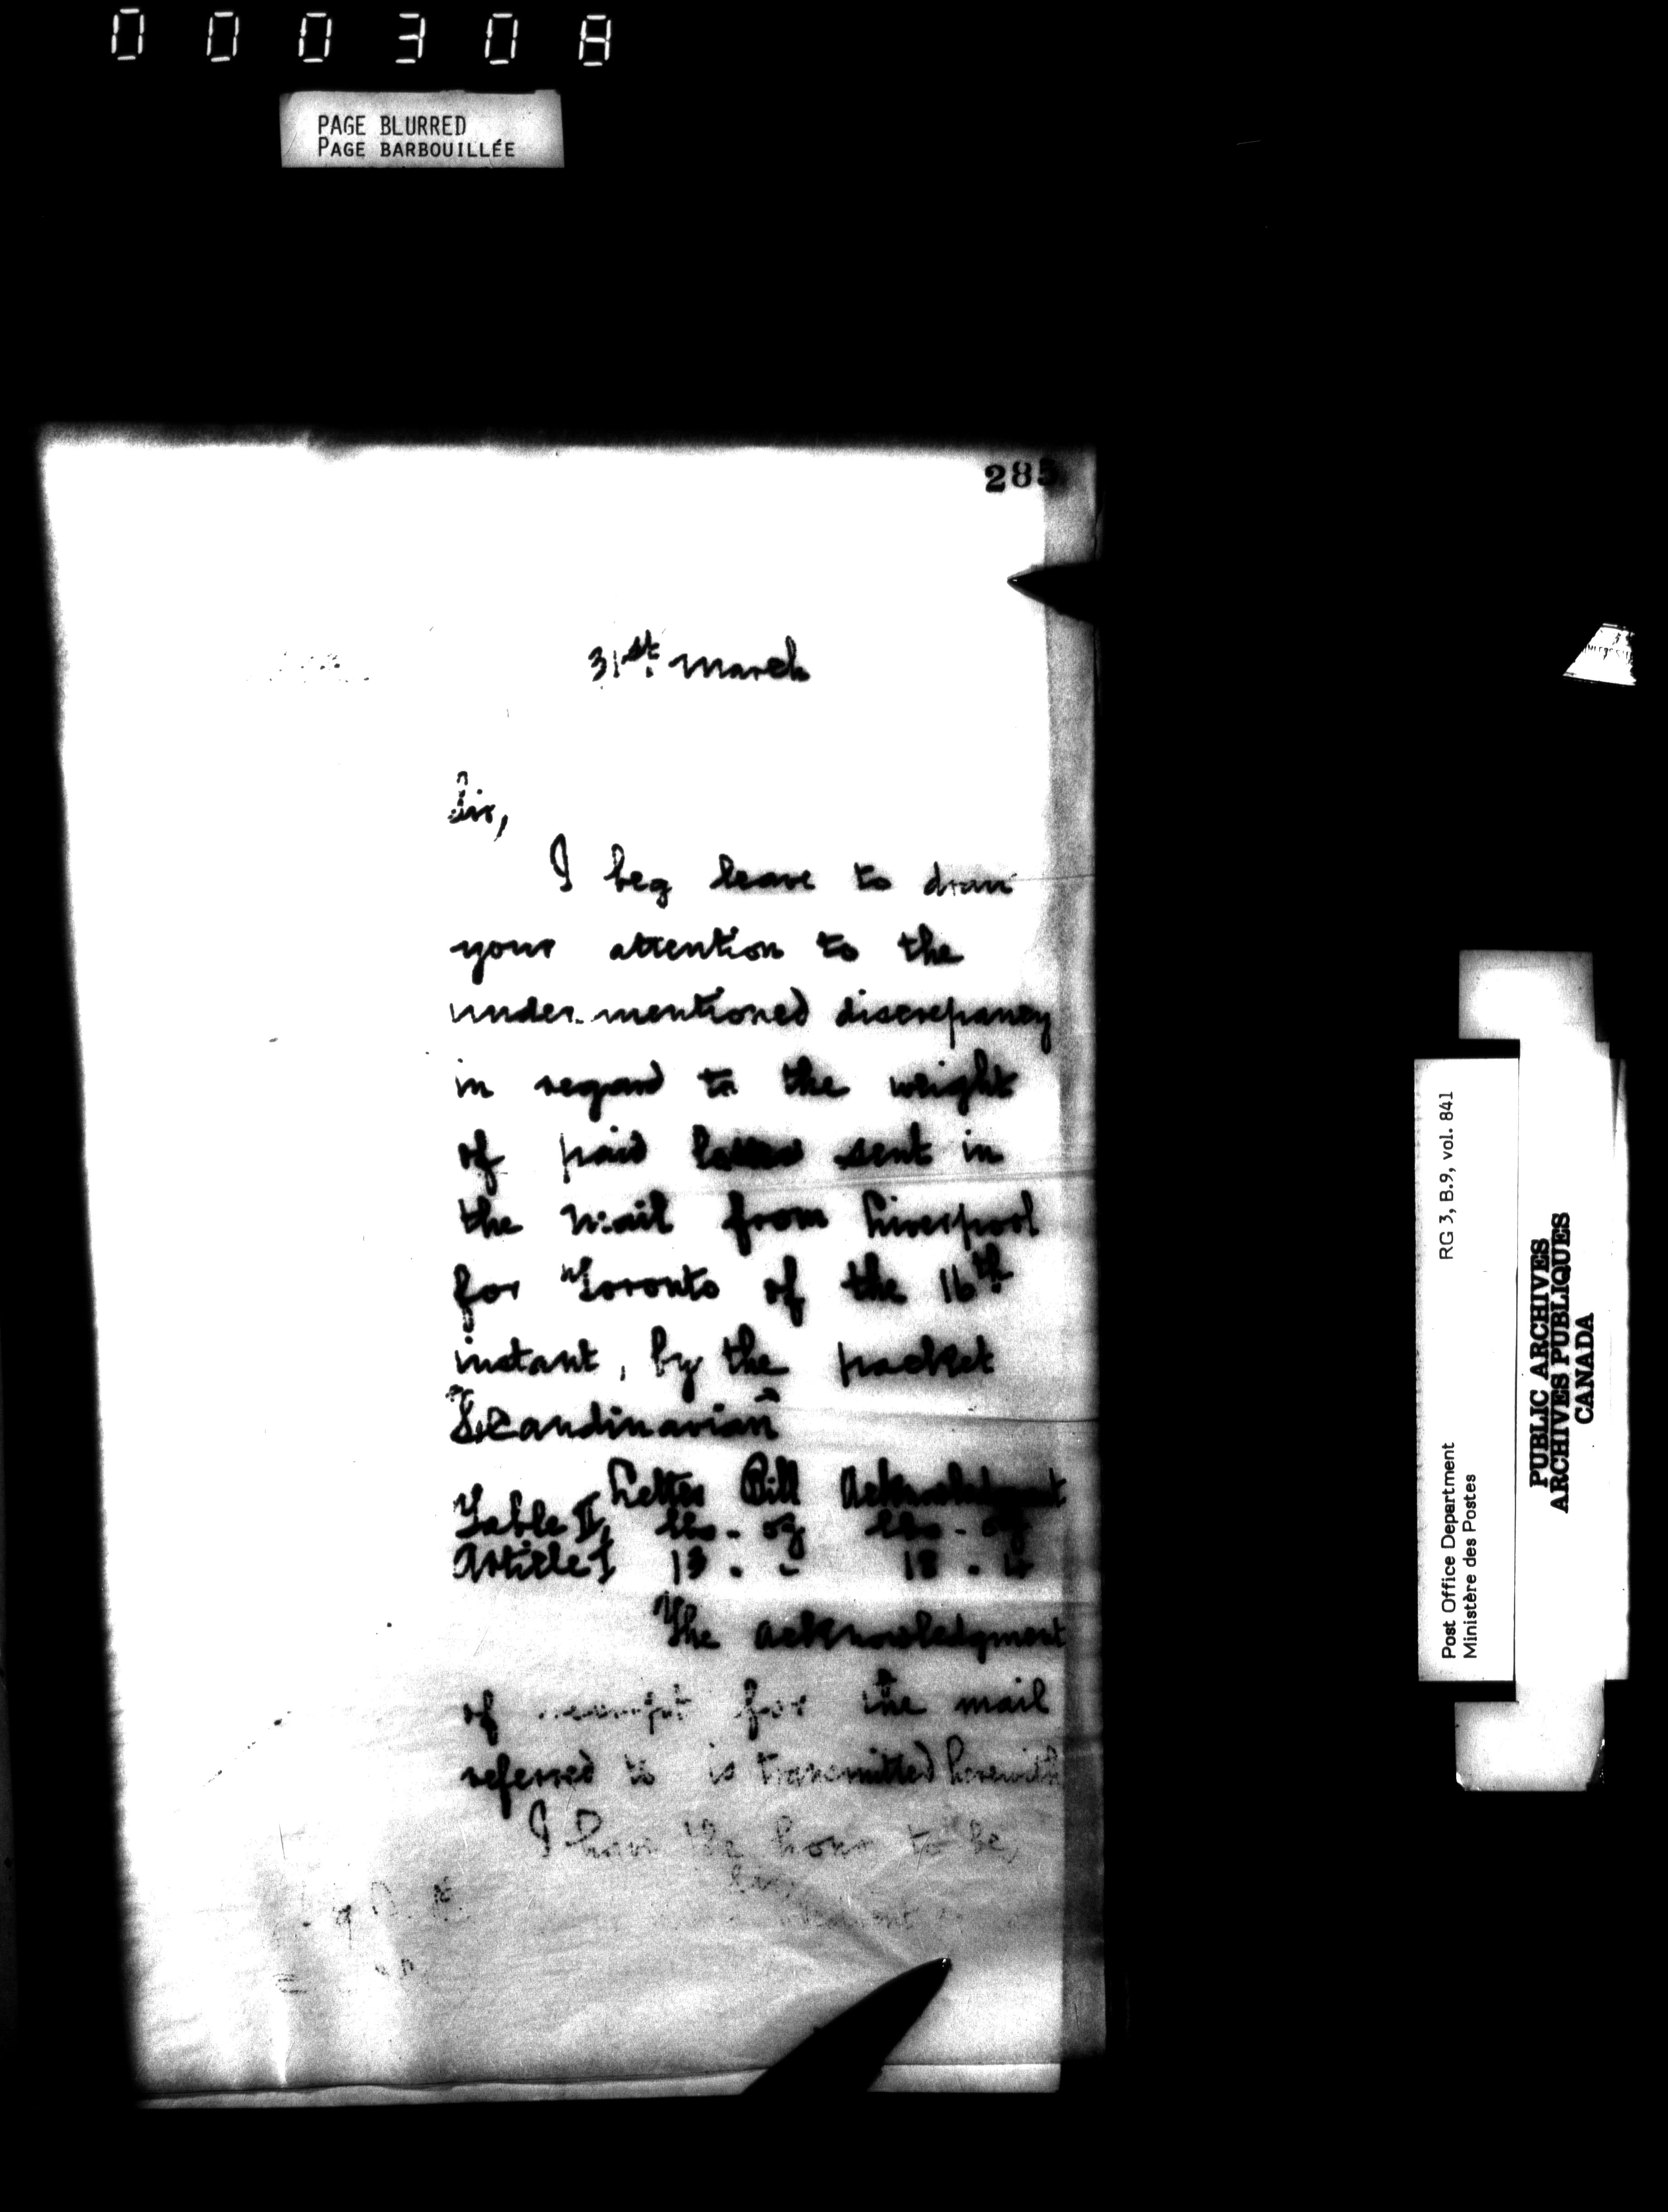 000308
PAGE BLURRED
PAGE BARBOUILLÉE
285
31st. March
Sir,
I beg leave to draw
your attention to the
under-mentioned discrepancy
in regard to the weight
of paid letters sent in
the mail from Liverpool
for Toronto of the 16th
instant, by the packet
"Scandinavian"
Letter Bill Acknowledgment
Table II, lbs. oz lbs. oz
Article 1 13 . - 18 .
The acknowledgment
of receipt for the mail
referred to is transmitted herewith
I have the honor to be,
RG 3, B.9, vol. 841
Post Office Department
Ministère des Postes
PUBLIC ARCHIVES
ARCHIVES PUBLIQUES
CANADA